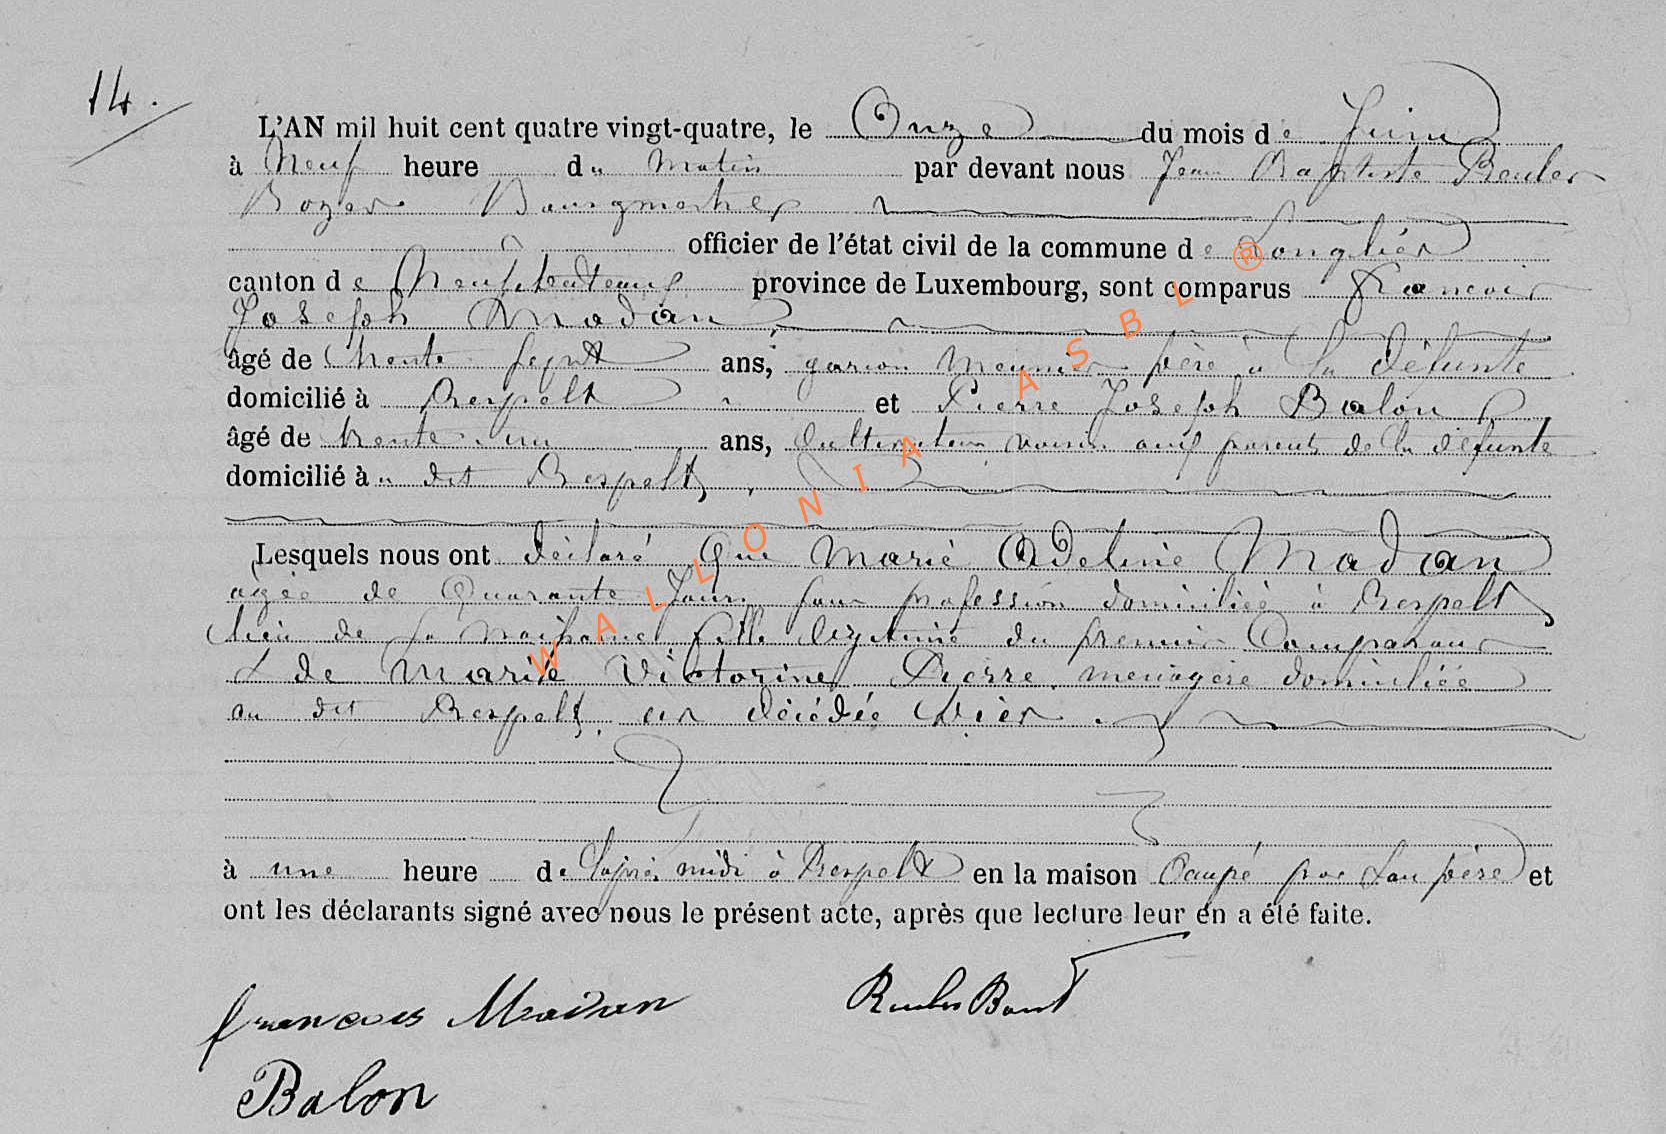 14.
L'AN mil huit cent quatre vingt-quatre, le Onze du mois de Juin
à Neuf heure du matin par devant nous Jean Baptiste Reuler
Bozer Bourgmestre
officier de l'état civil de la commune de Longlier
canton de Neufchateau province de Luxembourg, sont comparus Francois
Joseph Madan
âgé de trente sept ans, garcon Meunier père à la défunte
domicilié à Respelt et Pierre Joseph Balon
âgé de trente un ans, Cultivateur voisin aux parents de la défunte
domicilié à u dit Respelt
Lesquels nous ont déclaré Que Marie Adeline Madan
agée de Quarante Jours sans profession domiciliée à Respelt
lieu de sa naissance fille légitime du premier Comparant
& de Marie Victorine Pierre menagère domiciliée
au dit Respelt, est décédée hier
à une heure de l'après midi à Respelt en la maison Occupé par son père et
ont les déclarants signé avec nous le présent acte, après que lecture leur en a été faite.
francois Madan
Balon
WALLONIA ASBL ®